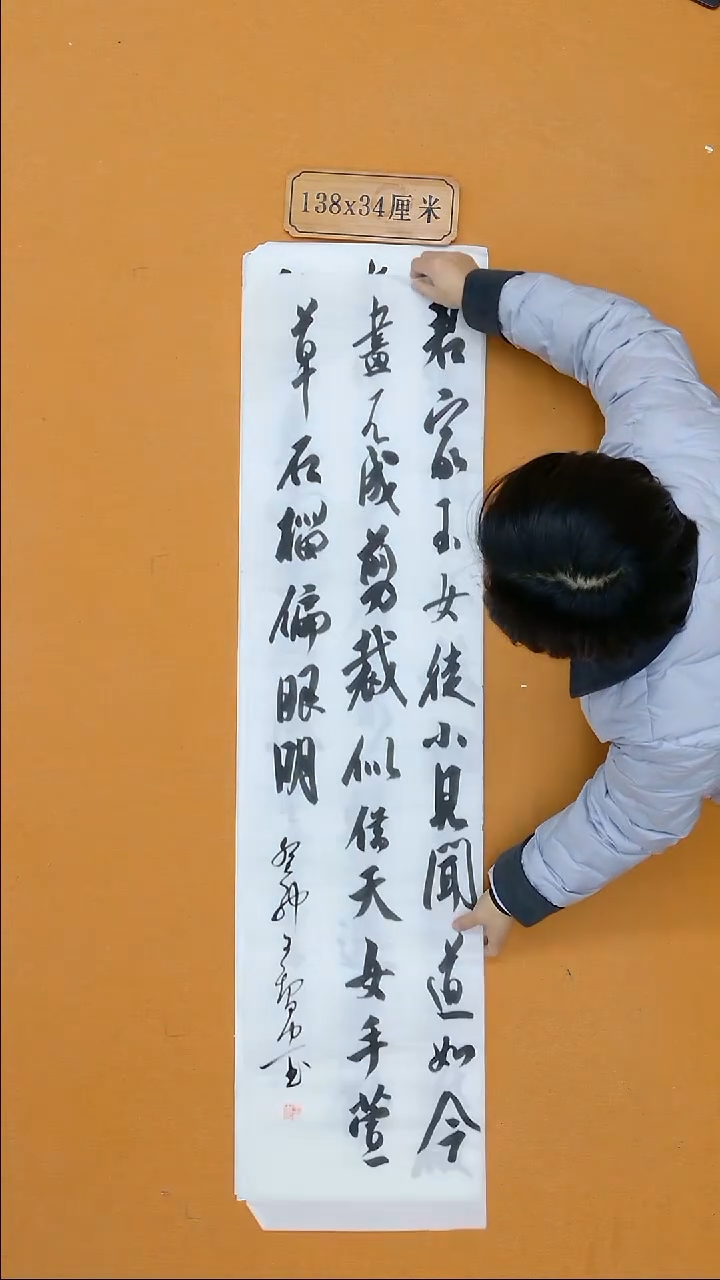 138x34厘米
君家玉女從小見聞道如今
畫不成剪裁似借天女手萱
草石榴偏眼明
癸卯